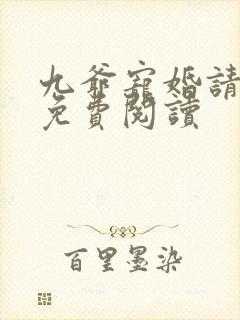 九爺寵婚請
免費閱讀
百里墨染